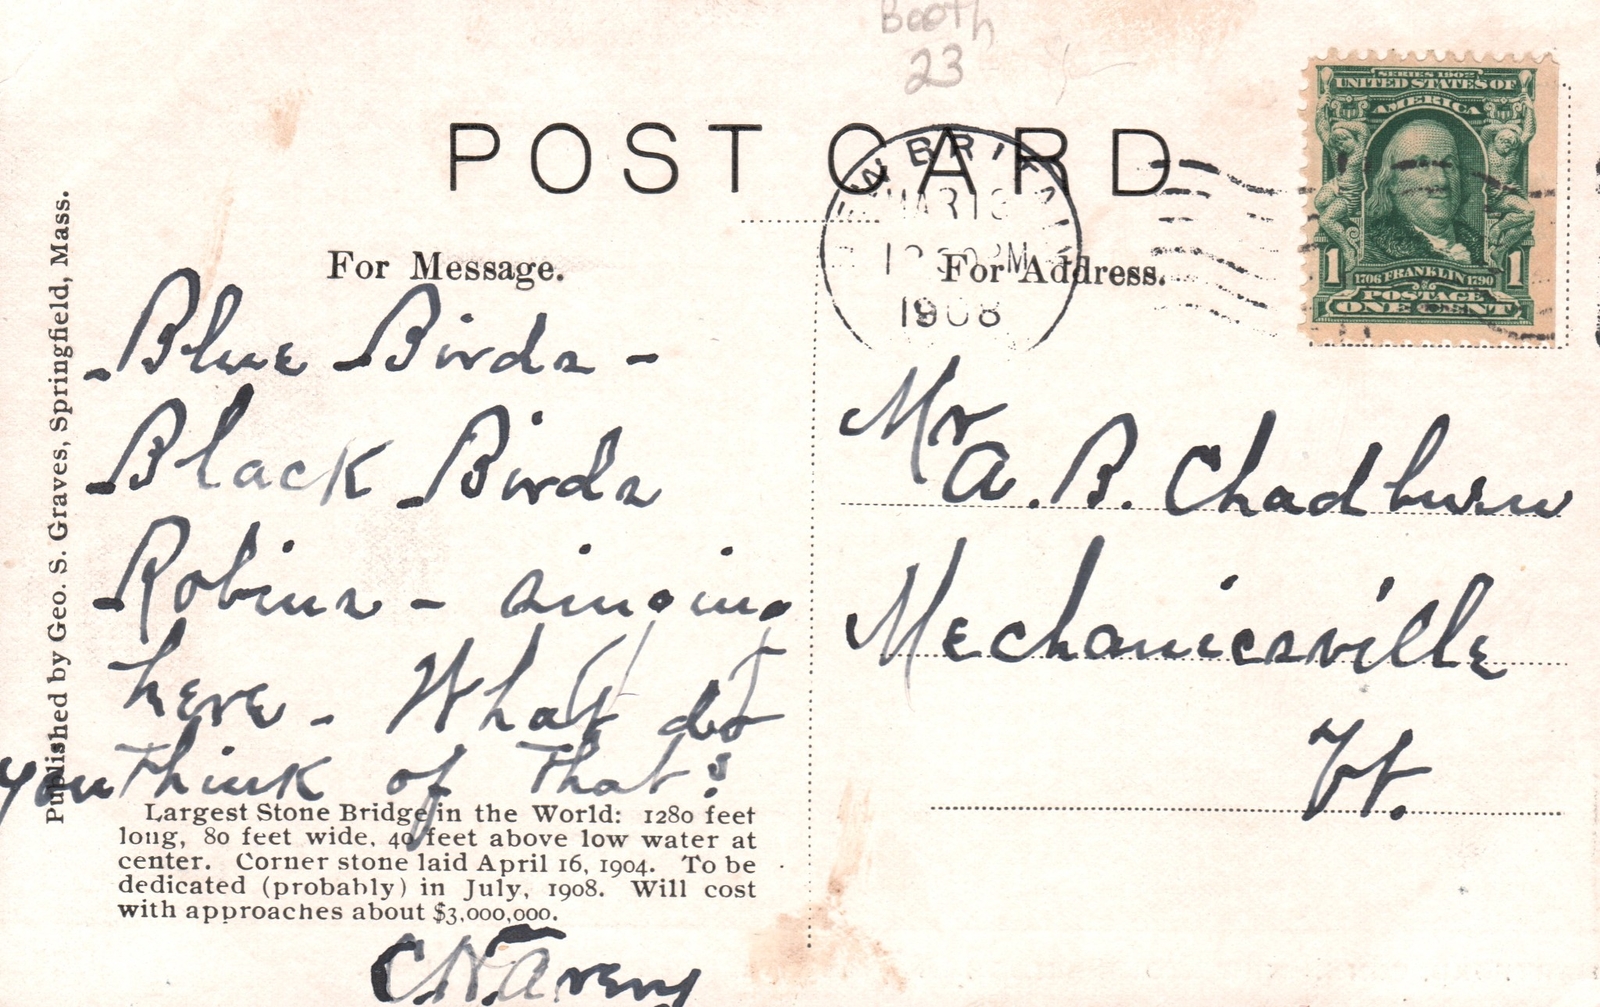 Booth
23
POST CARD
SERIES 1902
UNITED STATES OF
AMERICA
1 1706 FRANKLIN 1790 1
POSTAGE
ONE CENT
1908
For Message.
For Address.
Published by Geo. S. Graves, Springfield, Mass.
Blue Birds -
Black Birds
Robins - singing
here - What do
you think of that?
Largest Stone Bridge in the World: 1280 feet
long, 80 feet wide, 40 feet above low water at
center. Corner stone laid April 16, 1904. To be
dedicated (probably) in July, 1908. Will cost
with approaches about $3,000,000.
Avery
Mr
A. B. Chadburn
Mechanicsville
Vt.